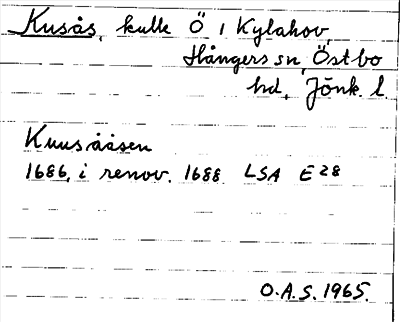 Kusås, kulle Ö i Kylahov,
Hångers sn, Östbo
hd, Jönk. l.
Kuusååsen
1686, i renov. 1688 LSA E28
O.A.S. 1965.